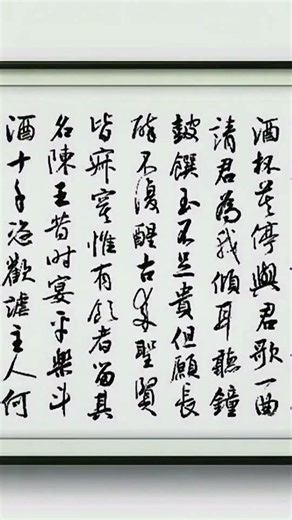 酒杯莫停與君歌一曲
請君為我傾耳聽鐘
鼓饌玉不足貴但願長
醉不復醒古来聖賢
皆寂寞惟有飲者留其
名陳王昔时宴平樂斗
酒十千恣歡謔主人何